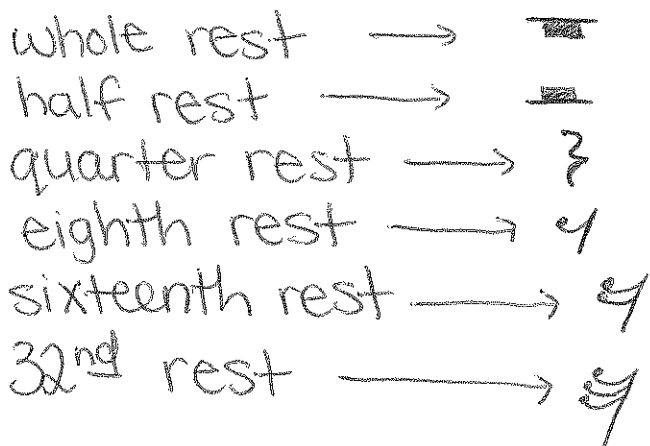 whole rest
half rest
quarter rest
eighth rest
sixteenth rest
32nd rest